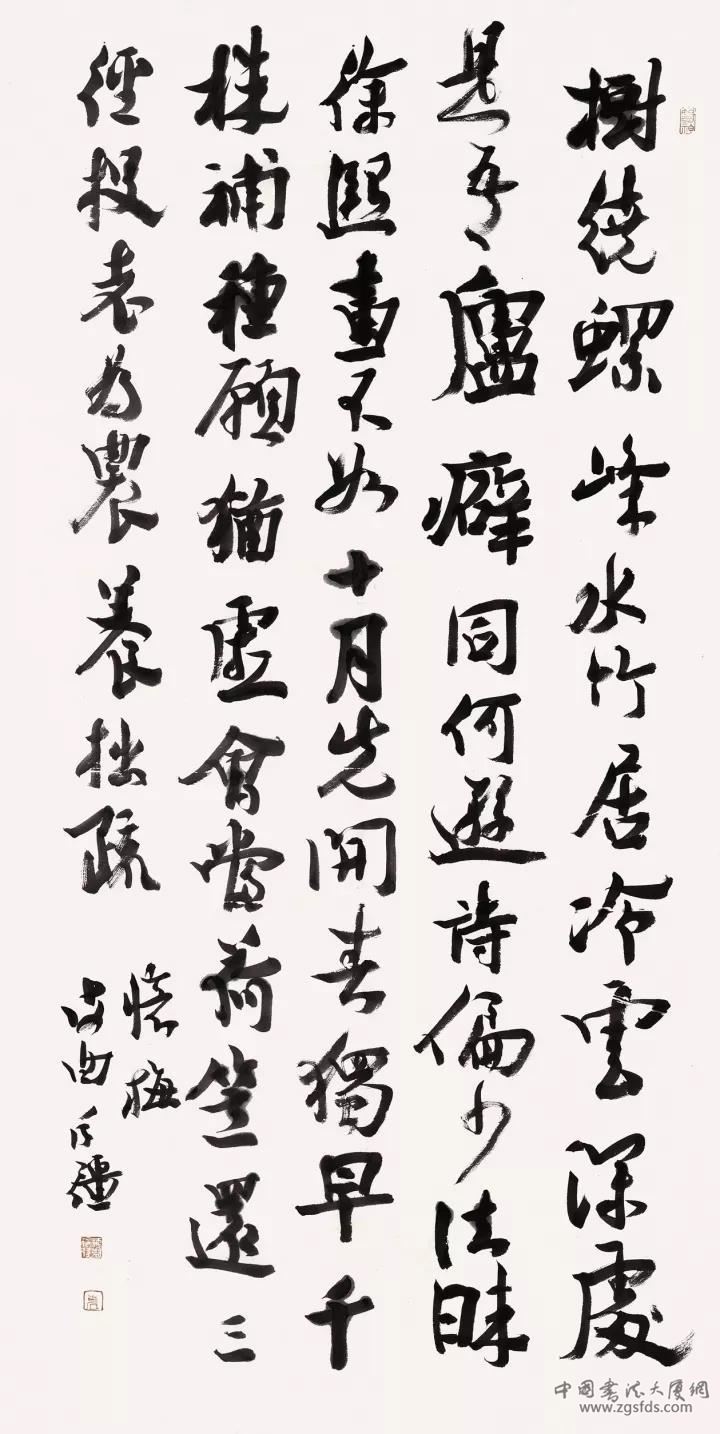 樹繞螺峰水竹居冷雲深處
是吾廬癖同何遜詩偏少法昧
徐熙畫不如十月先開春獨早千
株補種願猶虛會當荷笠還三
徑投老為農養拙疏
憶梅
中國書法大厦網
www.zgsfds.com